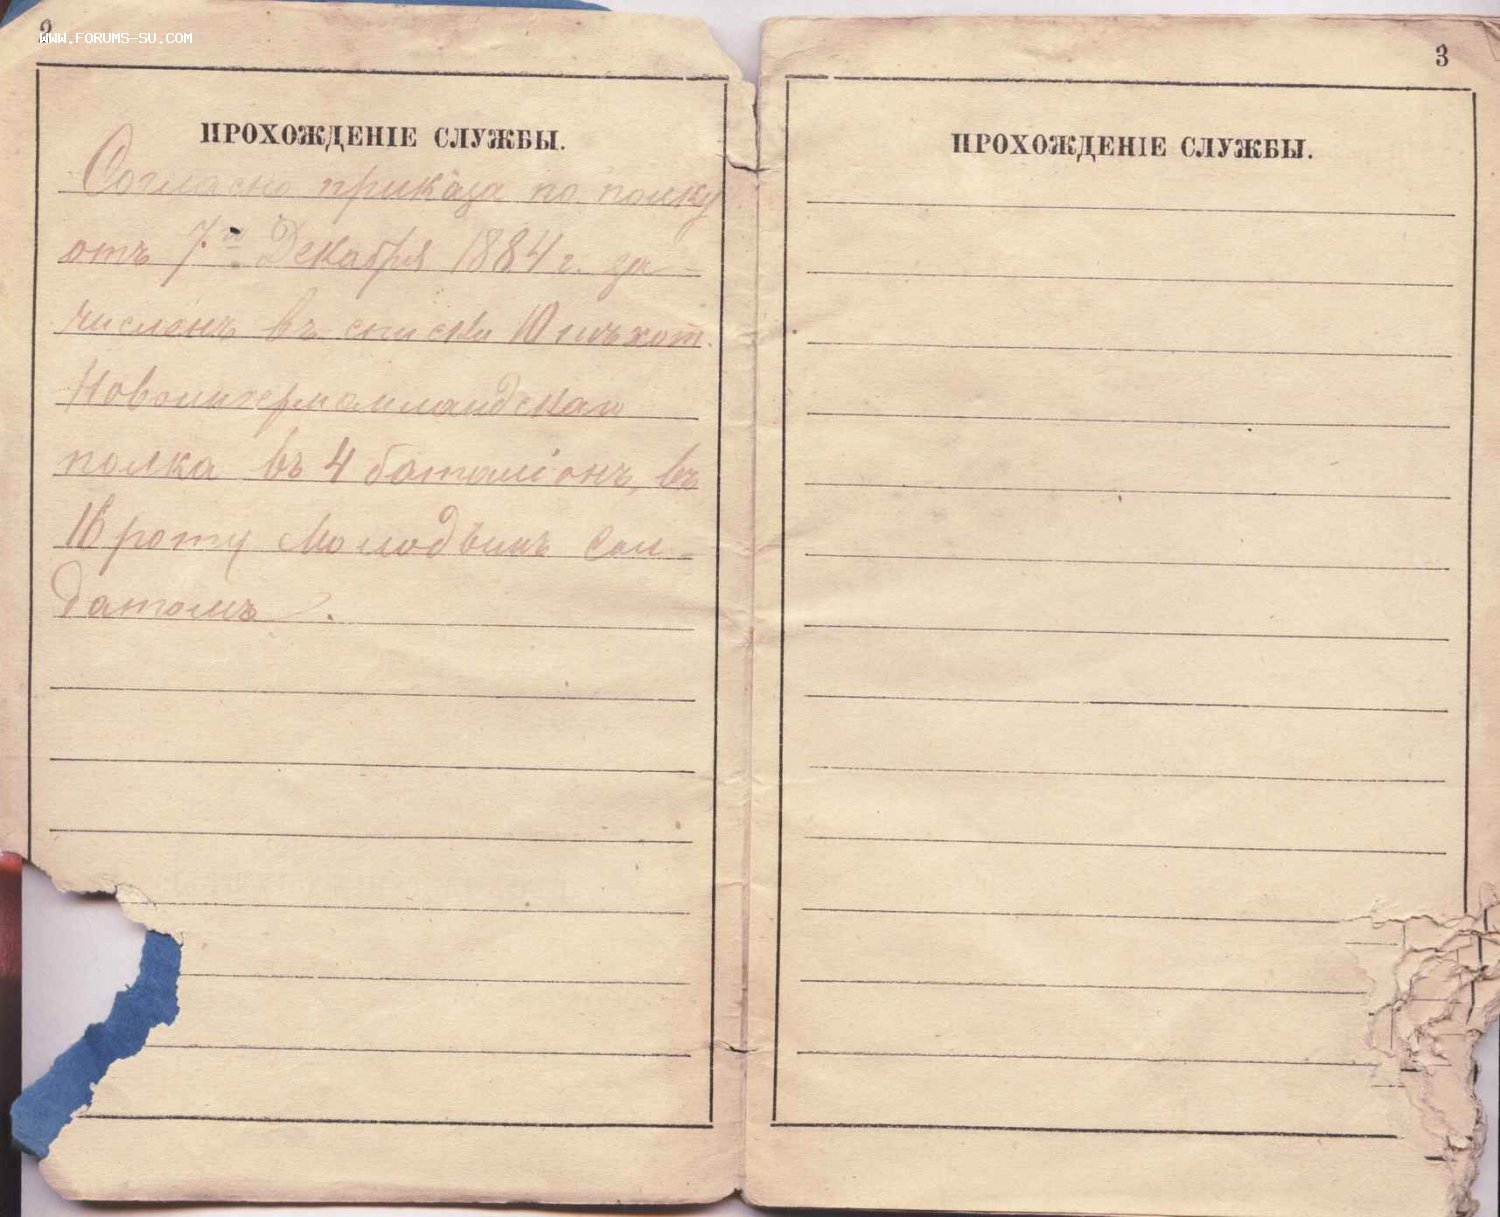 2
WWW.FORUMS-SU.COM
ПРОХОЖДЕНІЕ СЛУЖБЫ.
Согласно приказа по полку
отъ 7го Декабря 1884 г. за-
численъ въ списки 10 пѣхот.
Новоингерманландскаго
полка въ 4 баталіонъ, въ
16 роту Молодымъ Сол-
датомъ.
3
ПРОХОЖДЕНІЕ СЛУЖБЫ.